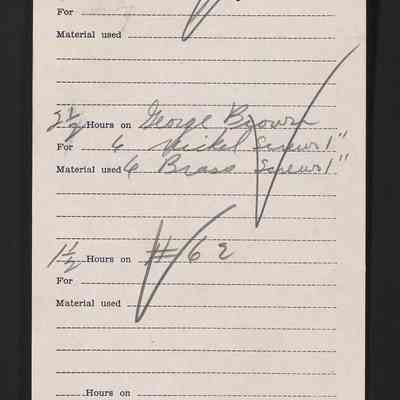 For
Material used
2 1/2 Hours on George Brown
For 6 Nickel Screws 1"
Material used 6 Brass Screws 1"
1 1/2 Hours on #62
For
Material used
Hours on